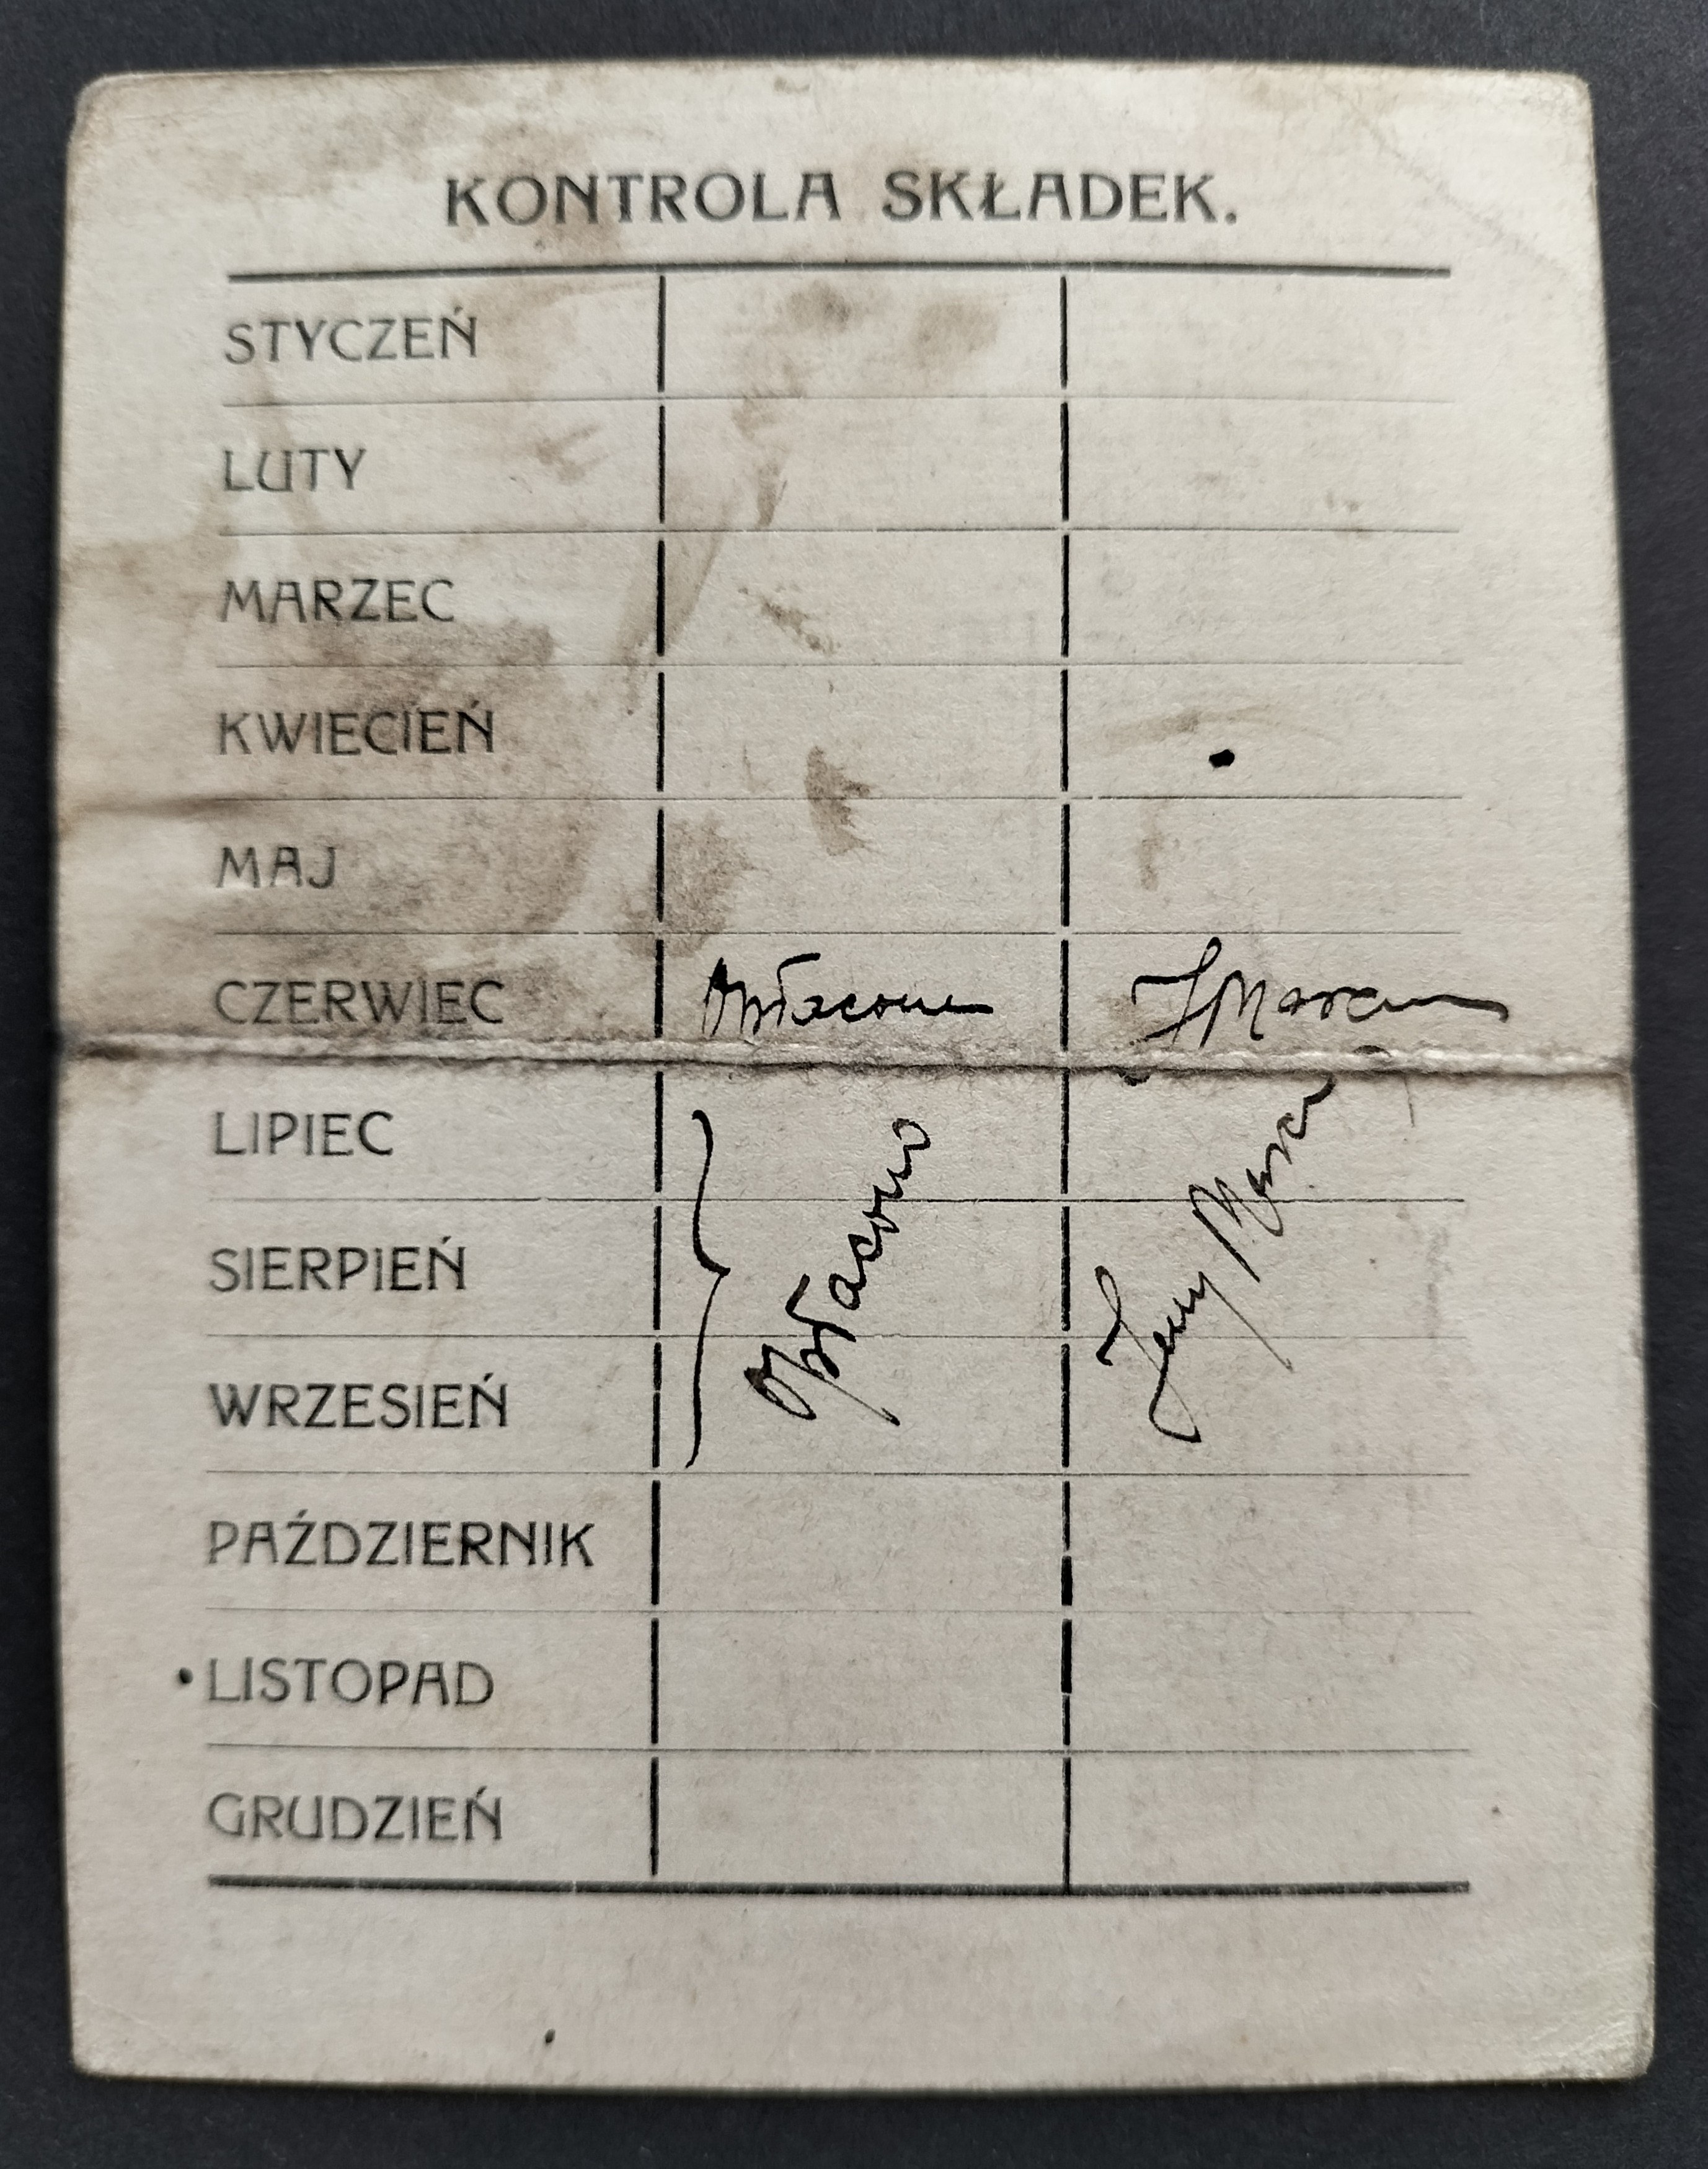 KONTROLA SKŁADEK.
STYCZEŃ
LUTY
MARZEC
KWIECIEŃ
MAJ
CZERWIEC Opłacone
LIPIEC
SIERPIEŃ Opłacono Jerzy
WRZESIEŃ
PAŹDZIERNIK
LISTOPAD
GRUDZIEŃ